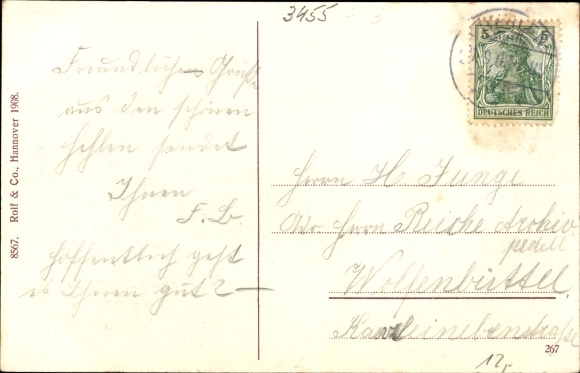 3455
Freundliche Grüße
aus den schönen
Hehlen sendet
Ihnen
F. L.
hoffentlich geht
es Ihnen gut? —
8567. Rolf & Co., Hannover 1908.
5 5
DEUTSCHES REICH
Herrn H. Junge
Herrn Reiche Archiv
pedell
Wolfenbüttel.
267
12,-